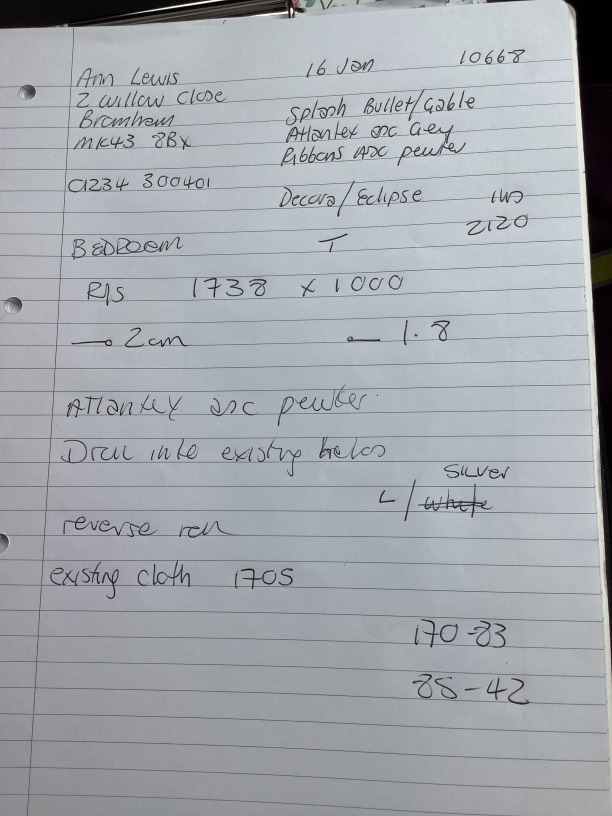 Ann Lewis 16 Jan 10668
2 willow close
Bromham
MK43 8BX
01234 300401
Splash Bullet/Gable
Atlantex asc Grey
Ribbons ASC pewter
Decora/Eclipse
2120
BEDROOM T
R/S 1738 x 1000
2cm 1.8
Atlantex asc pewter
Drill into existing holes
Silver
L/white
reverse roll
existing cloth 1705
170-83
85-42